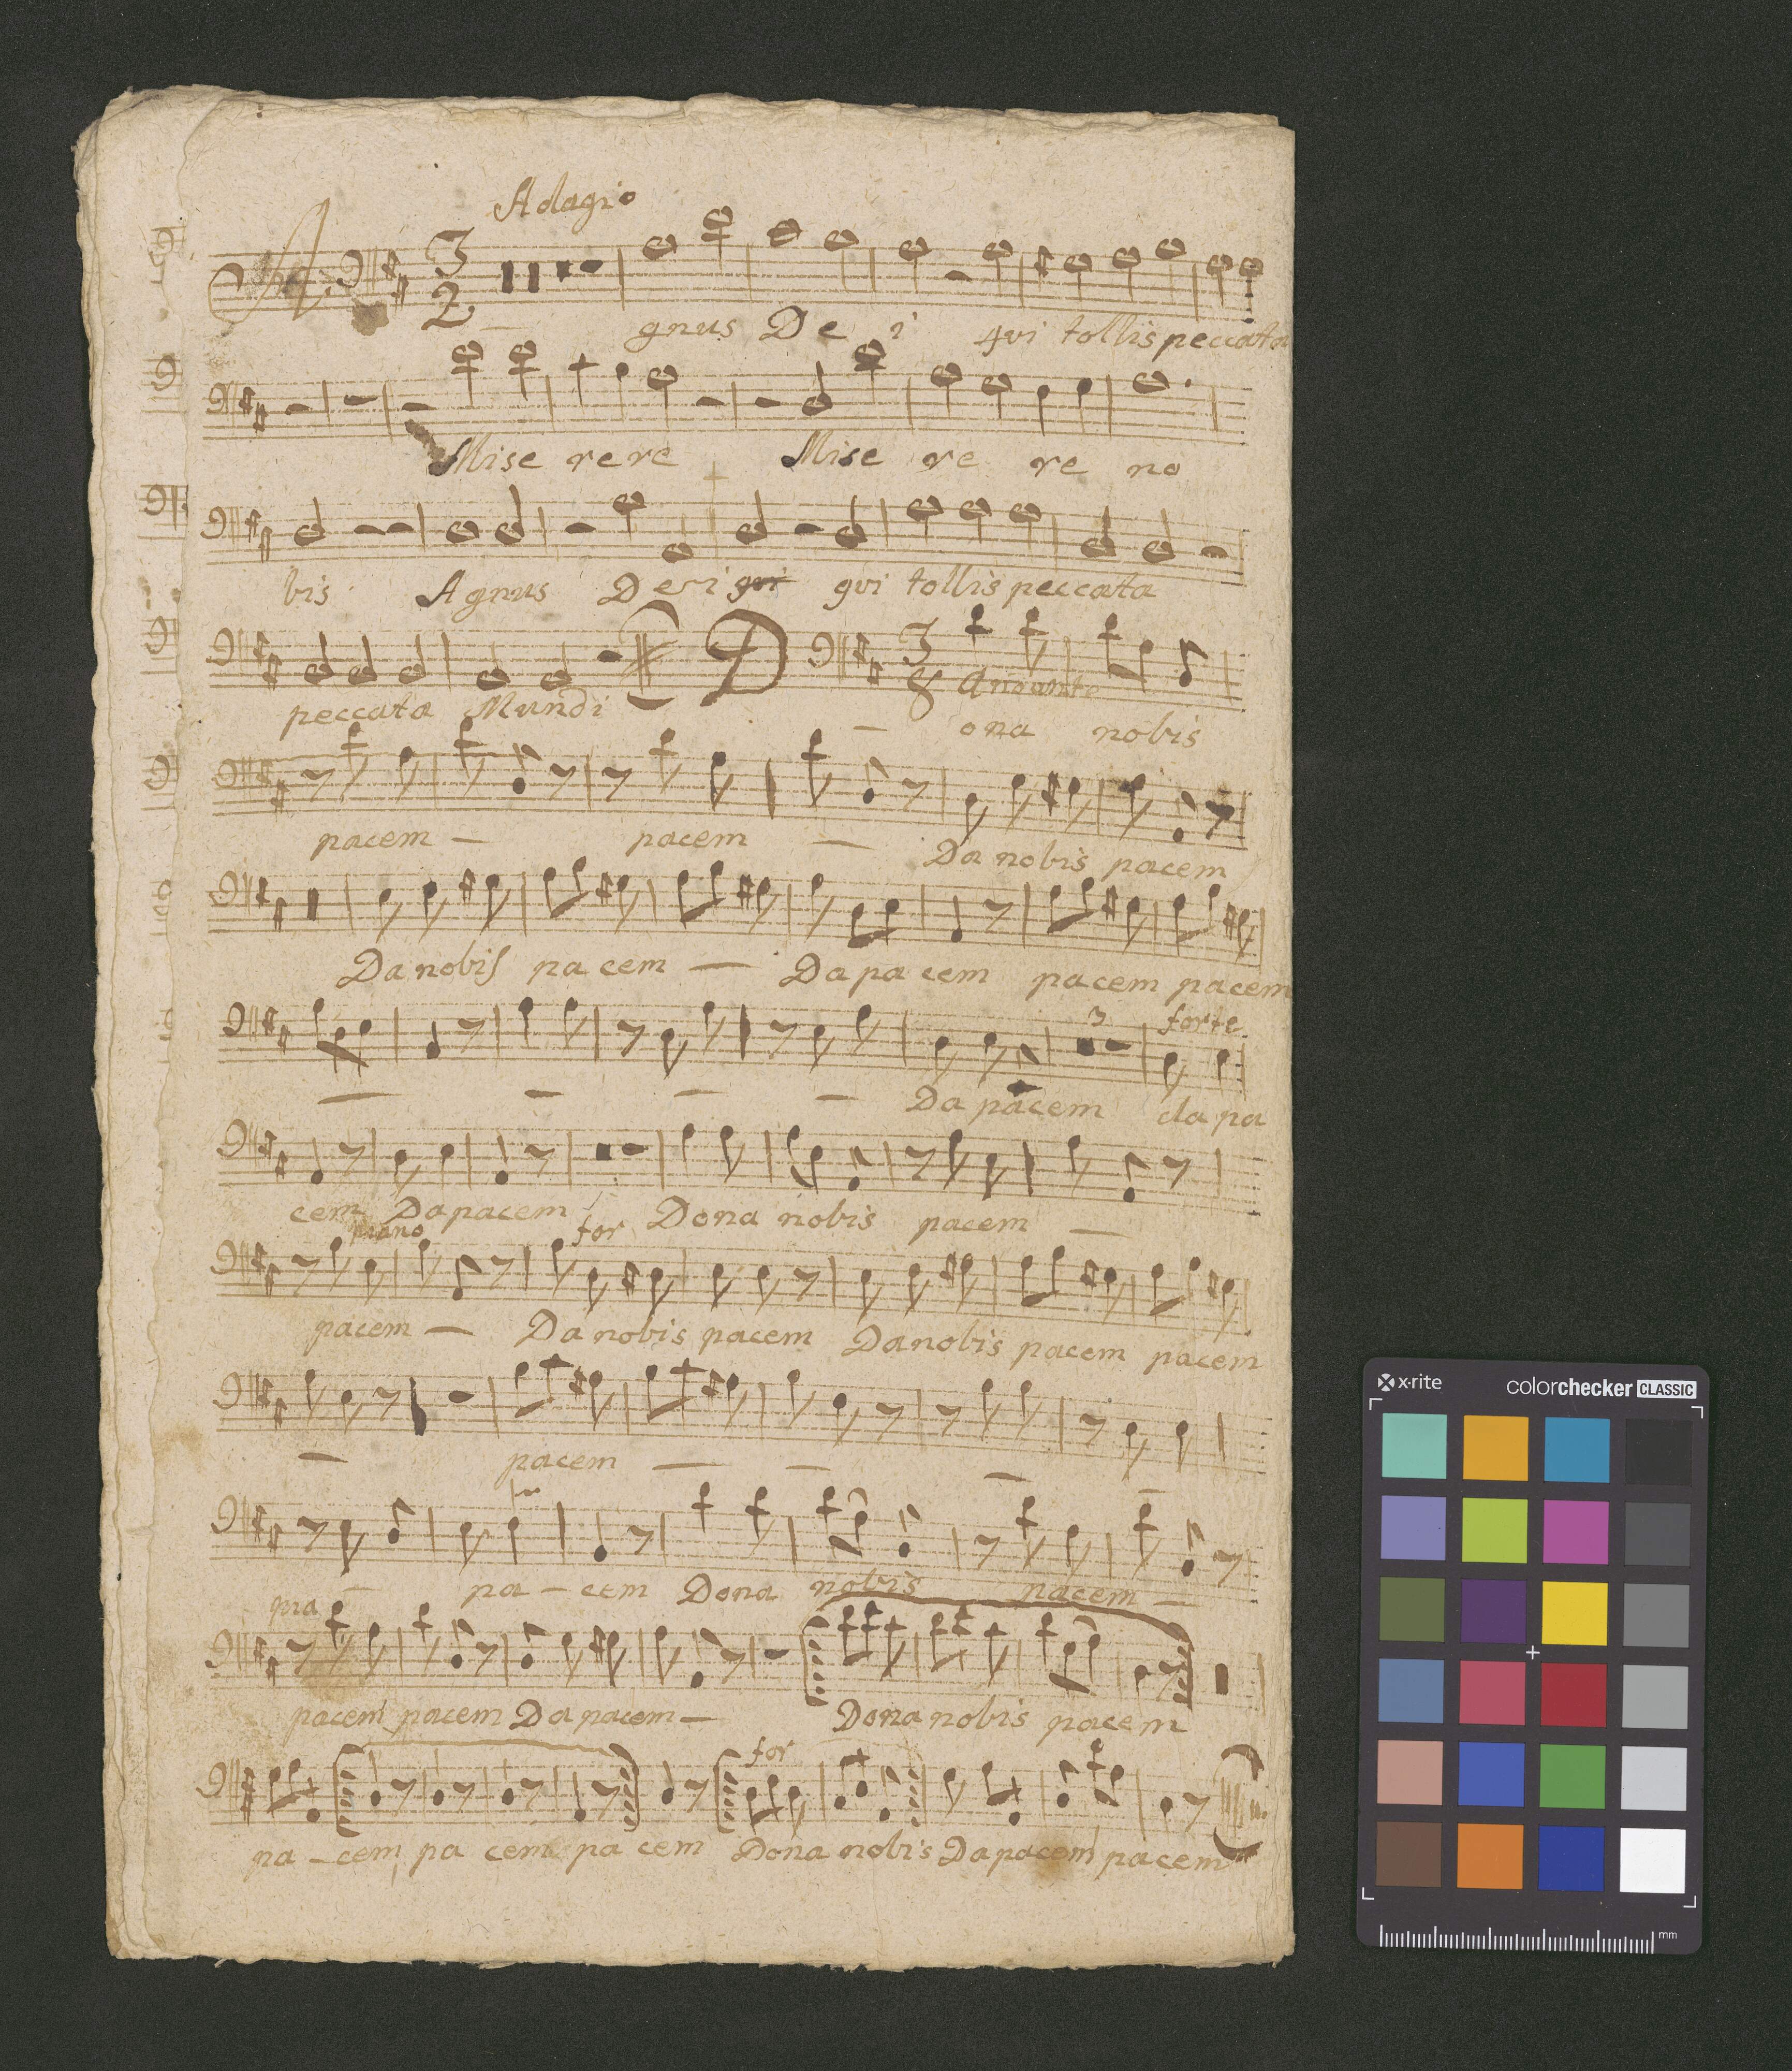 Adagio
A
3
2
gnus De i qui tollis peccata
Mise rere Mise re re no
bis Agnus De ei qui qui tollis peccata
D
3
8
Andante
peccata Mundi — ona nobis
pacem — pacem — Da nobis pacem
Da nobis pa cem — Da pa cem pacem pacem
3 forte
— — — — Da pacem da pa
cem Da pacem Dona nobis pacem —
piano for
pacem — Da nobis pacem Da nobis pacem pacem
— pacem — — —
— pa — cem Dona nobis pacem —
pia
pacem pacem Da pacem — Dona nobis pacem
for
pa — cem pa cem pa cem Dona nobis Da pacem pacem
x·rite
colorchecker CLASSIC
mm